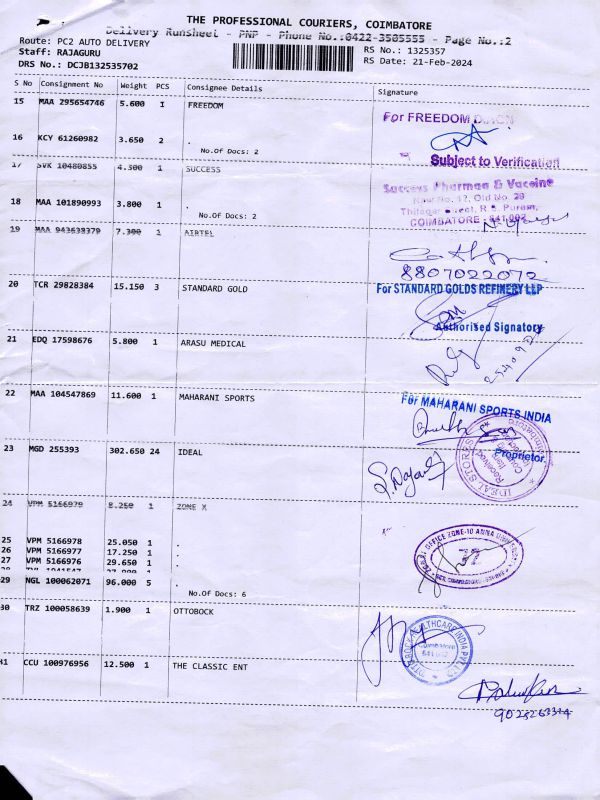 THE PROFESSIONAL COURIERS, COIMBATORE
Delivery Runsheet - PNP - Phone No.:0422-3505555 - Page No.:2
Route: PC2 AUTO DELIVERY
RS No.: 1325357
Staff: RAJAGURU
RS Date: 21-Feb-2024
DRS No.: DCJB132535702
S No Consignment No Weight PCS Consignee Details Signature
15 MAA 295654746 5.600 1 FREEDOM
For FREEDOM
16 KCY 61260982 3.650 2 .
No.Of Docs: 2
Subject to Verification
17 SVK 10480855 4.300 1 SUCCESS
Success Pharmaa & Vaccine
New No. 12, Old No. 29
18 MAA 101890993 3.800 1 .
Street, R.S. Puram,
No.Of Docs: 2
COIMBATORE - 641 002
19 MAA 943638379 7.300 1 AIRTEL
8807022072
20 TCR 29828384 15.150 3 STANDARD GOLD
For STANDARD GOLDS REFINERY LLP
Authorised Signatory
21 EDQ 17598676 5.800 1 ARASU MEDICAL
22 MAA 104547869 11.600 1 MAHARANI SPORTS
For MAHARANI SPORTS INDIA
Proprietor
23 MGD 255393 302.650 24 IDEAL
IDEAL STORES
24 VPM 5166979 8.250 1 ZONE X
25 VPM 5166978 25.050 1 .
26 VPM 5166977 17.250 1 .
27 VPM 5166976 29.650 1 .
29 NGL 100062071 96.000 5 .
No.Of Docs: 6
OFFICE ZONE-10 ANNA
37
30 TRZ 100058639 1.900 1 OTTOBOCK
OTTOBOCK HEALTHCARE INDIA PVT LTD
Coimbatore
31 CCU 100976956 12.500 1 THE CLASSIC ENT